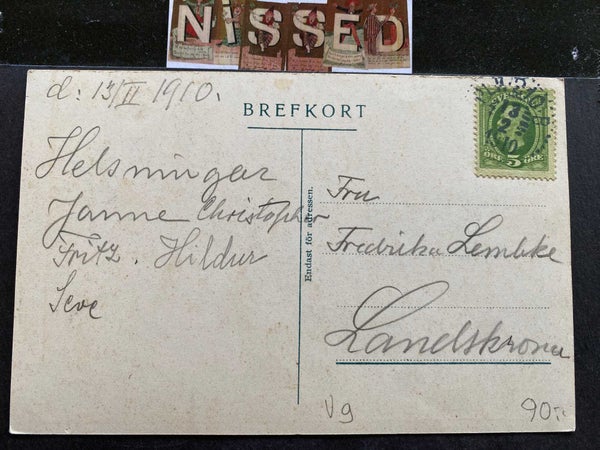 NiSSED
d: 13/II 1910.
BREFKORT
Helsningar
Janne Christopher
Fritz. Hildur
Seve
Endast för adressen.
5 ÖRE
Fru
Fredrika Lembke
Landskrona
Vg
90:-